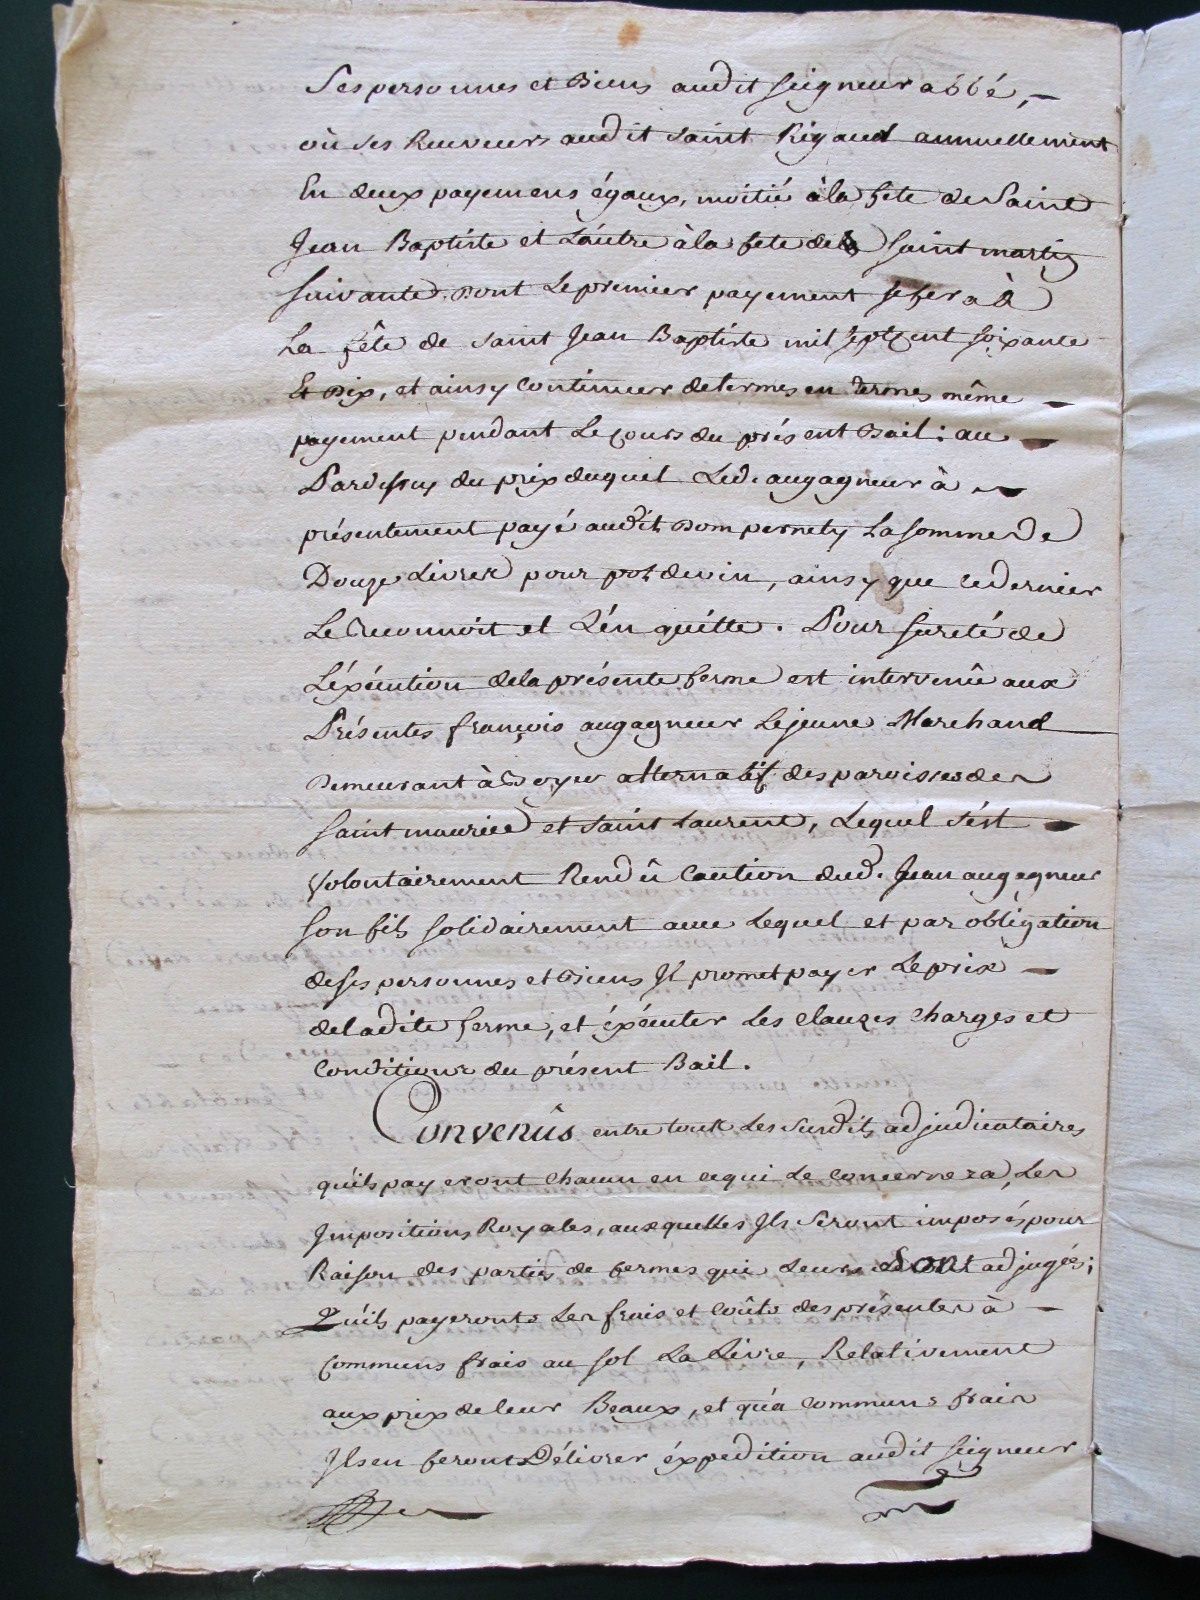 Ses personnes et Biens audit seigneur abbé,
où ses Receveurs audit saint Rigaud annuellement
En deux payemens égaux, moitié à la fete de Saint
Jean Baptiste et L'autre à la fete de saint martin
suivante. Dont Le premier payement se fera à
La fête de saint Jean Baptiste mil sept cent soixante
Et Dix, et ainsy Continuer de termes en termes même
payement pendant Le cours du présent Bail: au
Pardessus du prix duquel Led. augagneur à
présentement payé audit Dom pernety La somme de
Douze Livres pour pot de vin, ainsy que ce dernier
Le Reconnoit et L'én quitte. Pour sureté de
L'éxécution de la présente ferme est intervenû aux
Présentes françois augagneur Le jeune Marchand
Demeurant à Doyer alternatif des paroisses de
saint maurice et saint Laurent, Lequel s'ést
Volontairement Rendû Caution dud. Jean augagneur
son fils solidairement avec Lequel et par obligation
de ses personnes et Biens Il promet payer Le prix
de la dite ferme, et éxécuter Les clauzes charges et
Conditions du présent Bail.
Convenûs entre tous Les susdits adjudicataires
qu'ils payeront chacun en ce qui Le concernera, Les
Impositions Royales, auxquelles Ils seront imposés pour
Raison des parties de fermes qui Leurs Sont adjugées;
Qu'ils payeront Les frais et coûts des présentes à
Communs frais au sol La Livre, Relativement
aux prix de leur Beaux, et qu'a communs frais
Ils en feront Délivrer éxpedition audit seigneur